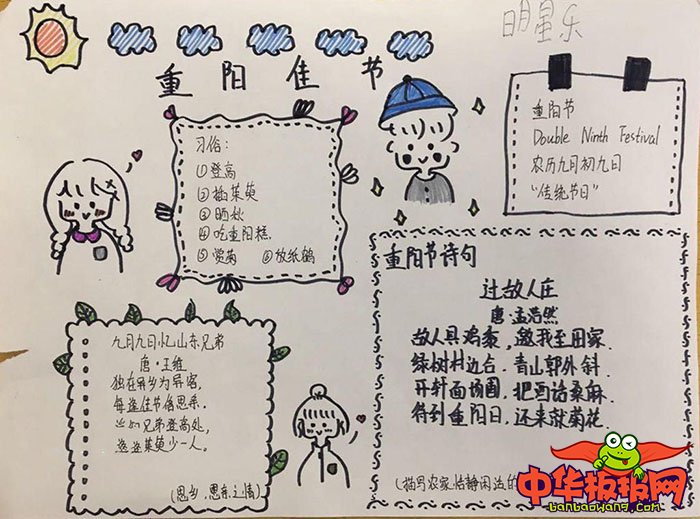 明星乐
重阳佳节
习俗:
①登高
②插茱萸
③晒秋
④吃重阳糕
⑤赏菊 ⑥放纸鹞
重阳节
Double Ninth Festival
农历九月初九日
"传统节日"
重阳节诗句
过故人庄
唐·孟浩然
故人具鸡黍,邀我至田家.
绿树村边合.青山郭外斜.
开轩面场圃,把酒话桑麻.
待到重阳日,还来就菊花.
(描写农家恬静闲适的
九月九日忆山东兄弟
唐·王维
独在异乡为异客,
每逢佳节倍思亲.
遥知兄弟登高处,
遍插茱萸少一人。
(思乡,思亲之情)
中华板报网
banbaowang.com